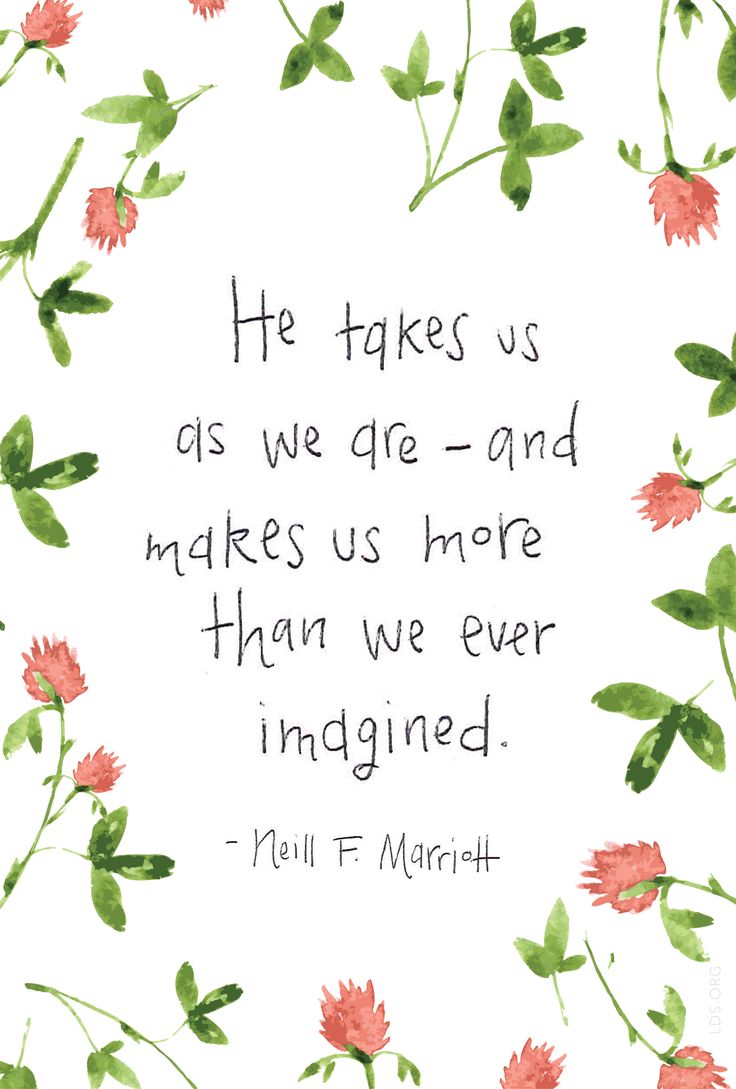 He takes us
as we are – and
makes us more
than we ever
imagined.
- Neill F. Marriott
LDS.ORG